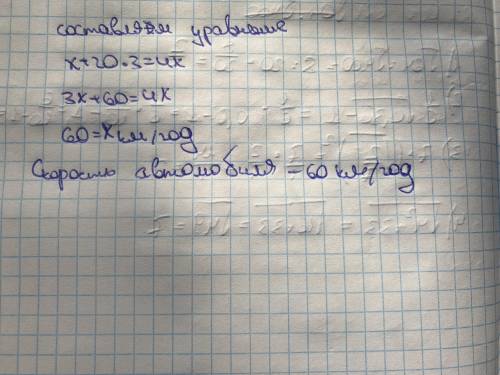 составляем уравнение
x+20·3=4x
3x+60=4x
60=x км/год
Скорость автомобиля – 60 км/год